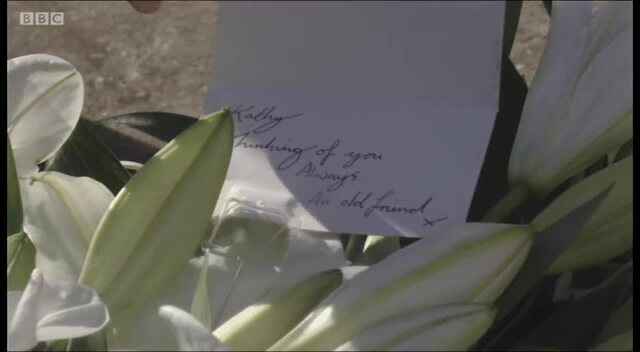 BBC
Kathy
Thinking of you
Always.
An old friend x